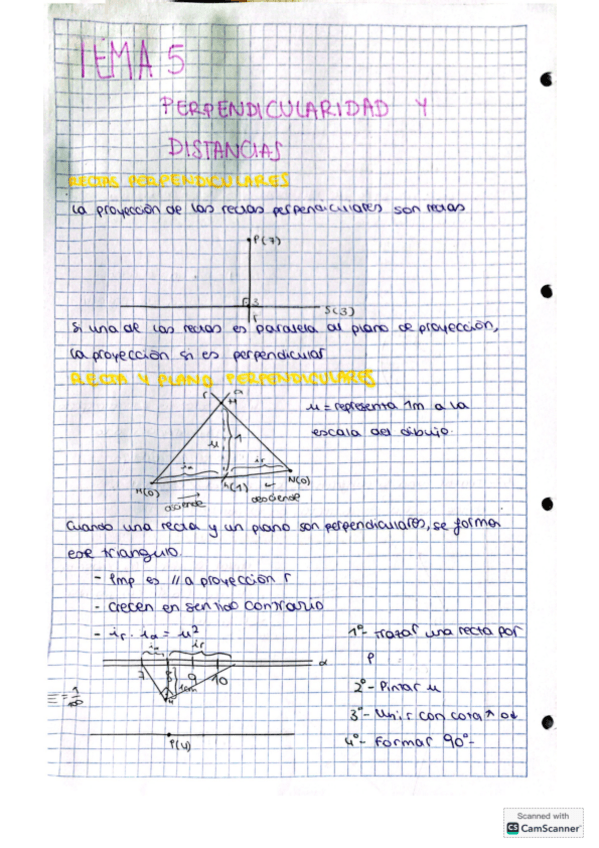 TEMA 5
PERPENDICULARIDAD Y
DISTANCIAS
RECTAS PERPENDICULARES
La proyección de las rectas perpendiculares son rectas
P(7)
3
S(3)
r
Si una de las rectas es paralela al plano de proyección,
la proyección si es perpendicular
RECTA Y PLANO PERPENDICULARES
r
a
H
u = representa 1m a la
escala del dibujo.
u
1
ia
ir
M(0)
h(1)
N(0)
asciende
desciende
Cuando una recta y un plano son perpendiculares, se forma
ese triangulo.
- Pmp es // a proyección r
- Crecen en sentido contrario
- ir · ia = u²
1º- Trazar una recta por
P
ia
ir
α
7 8 9 10
1cm
H
2º- Pintar u
3º- Unir con cota
4º- Formar 90º-
P(4)
Scanned with
CS CamScanner